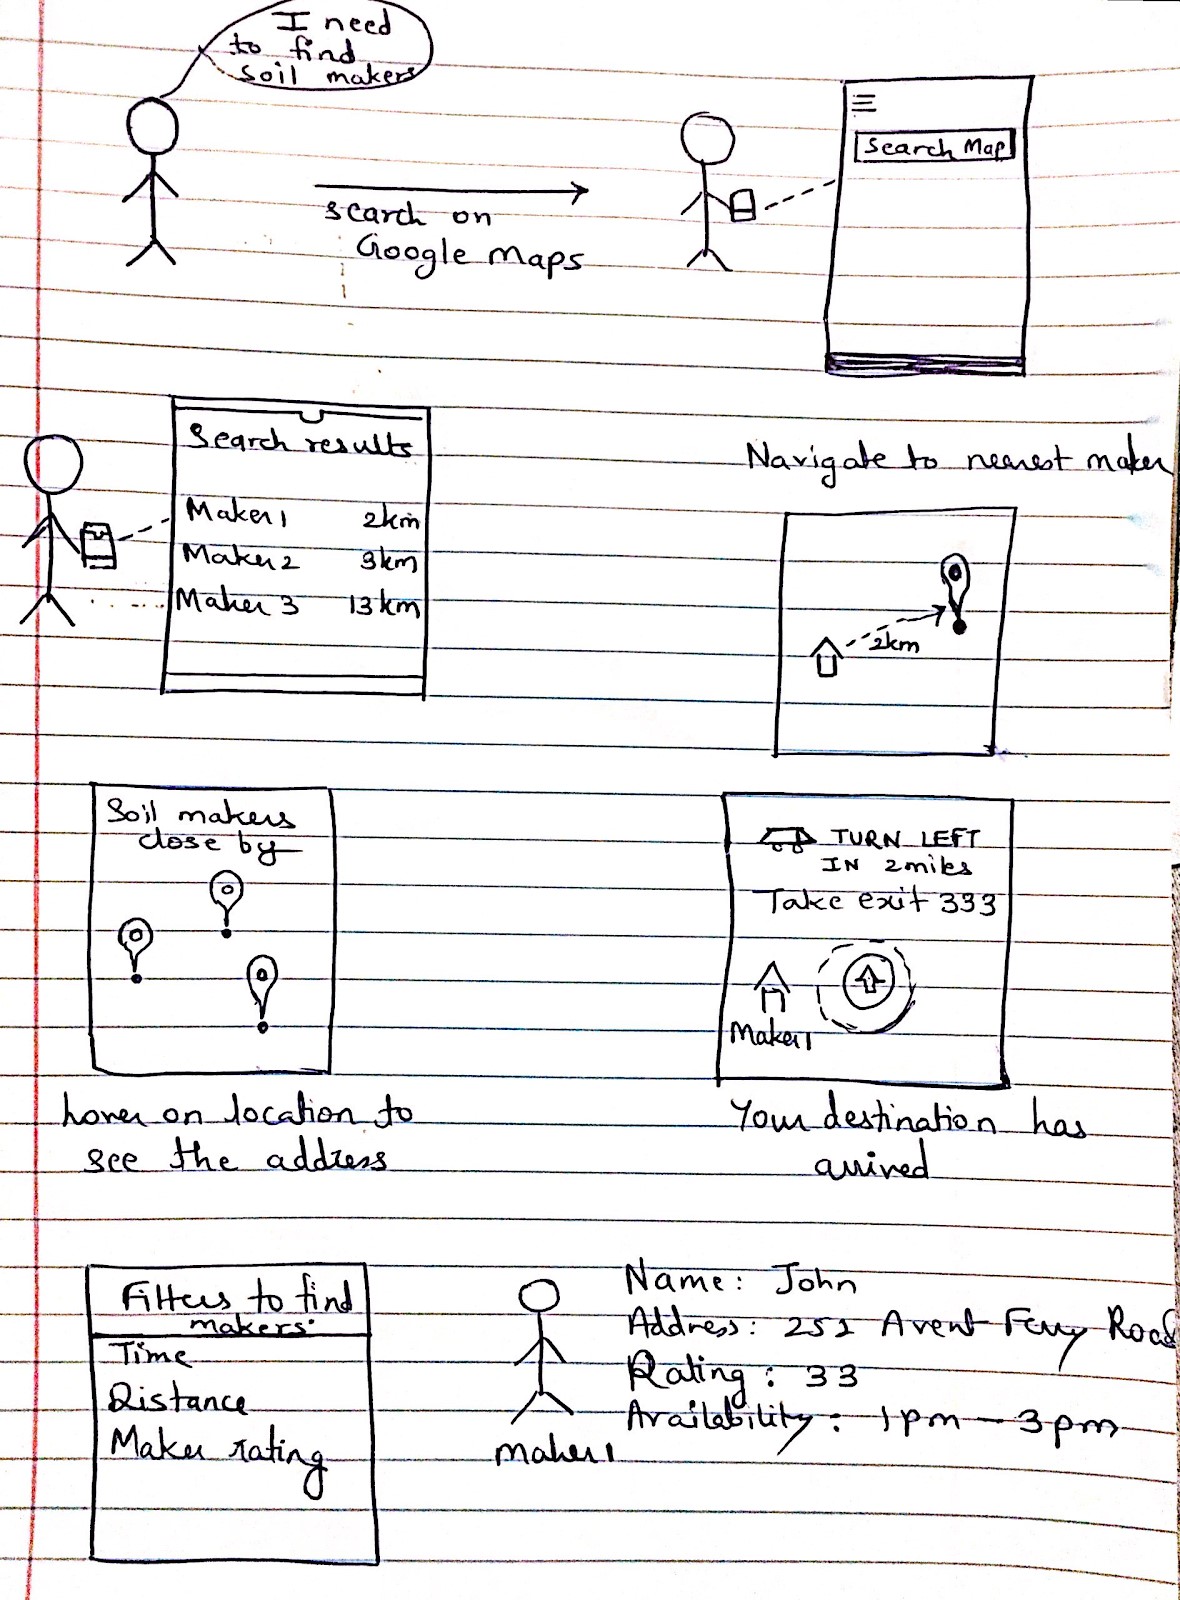 I need
to find
soil makers
search on
Google Maps
Search Map
Search results
Maker 1 2km
Maker 2 3km
Maker 3 13km
Navigate to nearest maker
2km
Soil makers
close by
hover on location to
see the address
TURN LEFT
IN 2 miles
Take exit 333
Maker 1
Your destination has
arrived
Filters to find
makers:
Time
Distance
Maker rating
maker 1
Name: John
Address: 251 Avent Ferry Road
Rating: 33
Availability: 1pm - 3pm